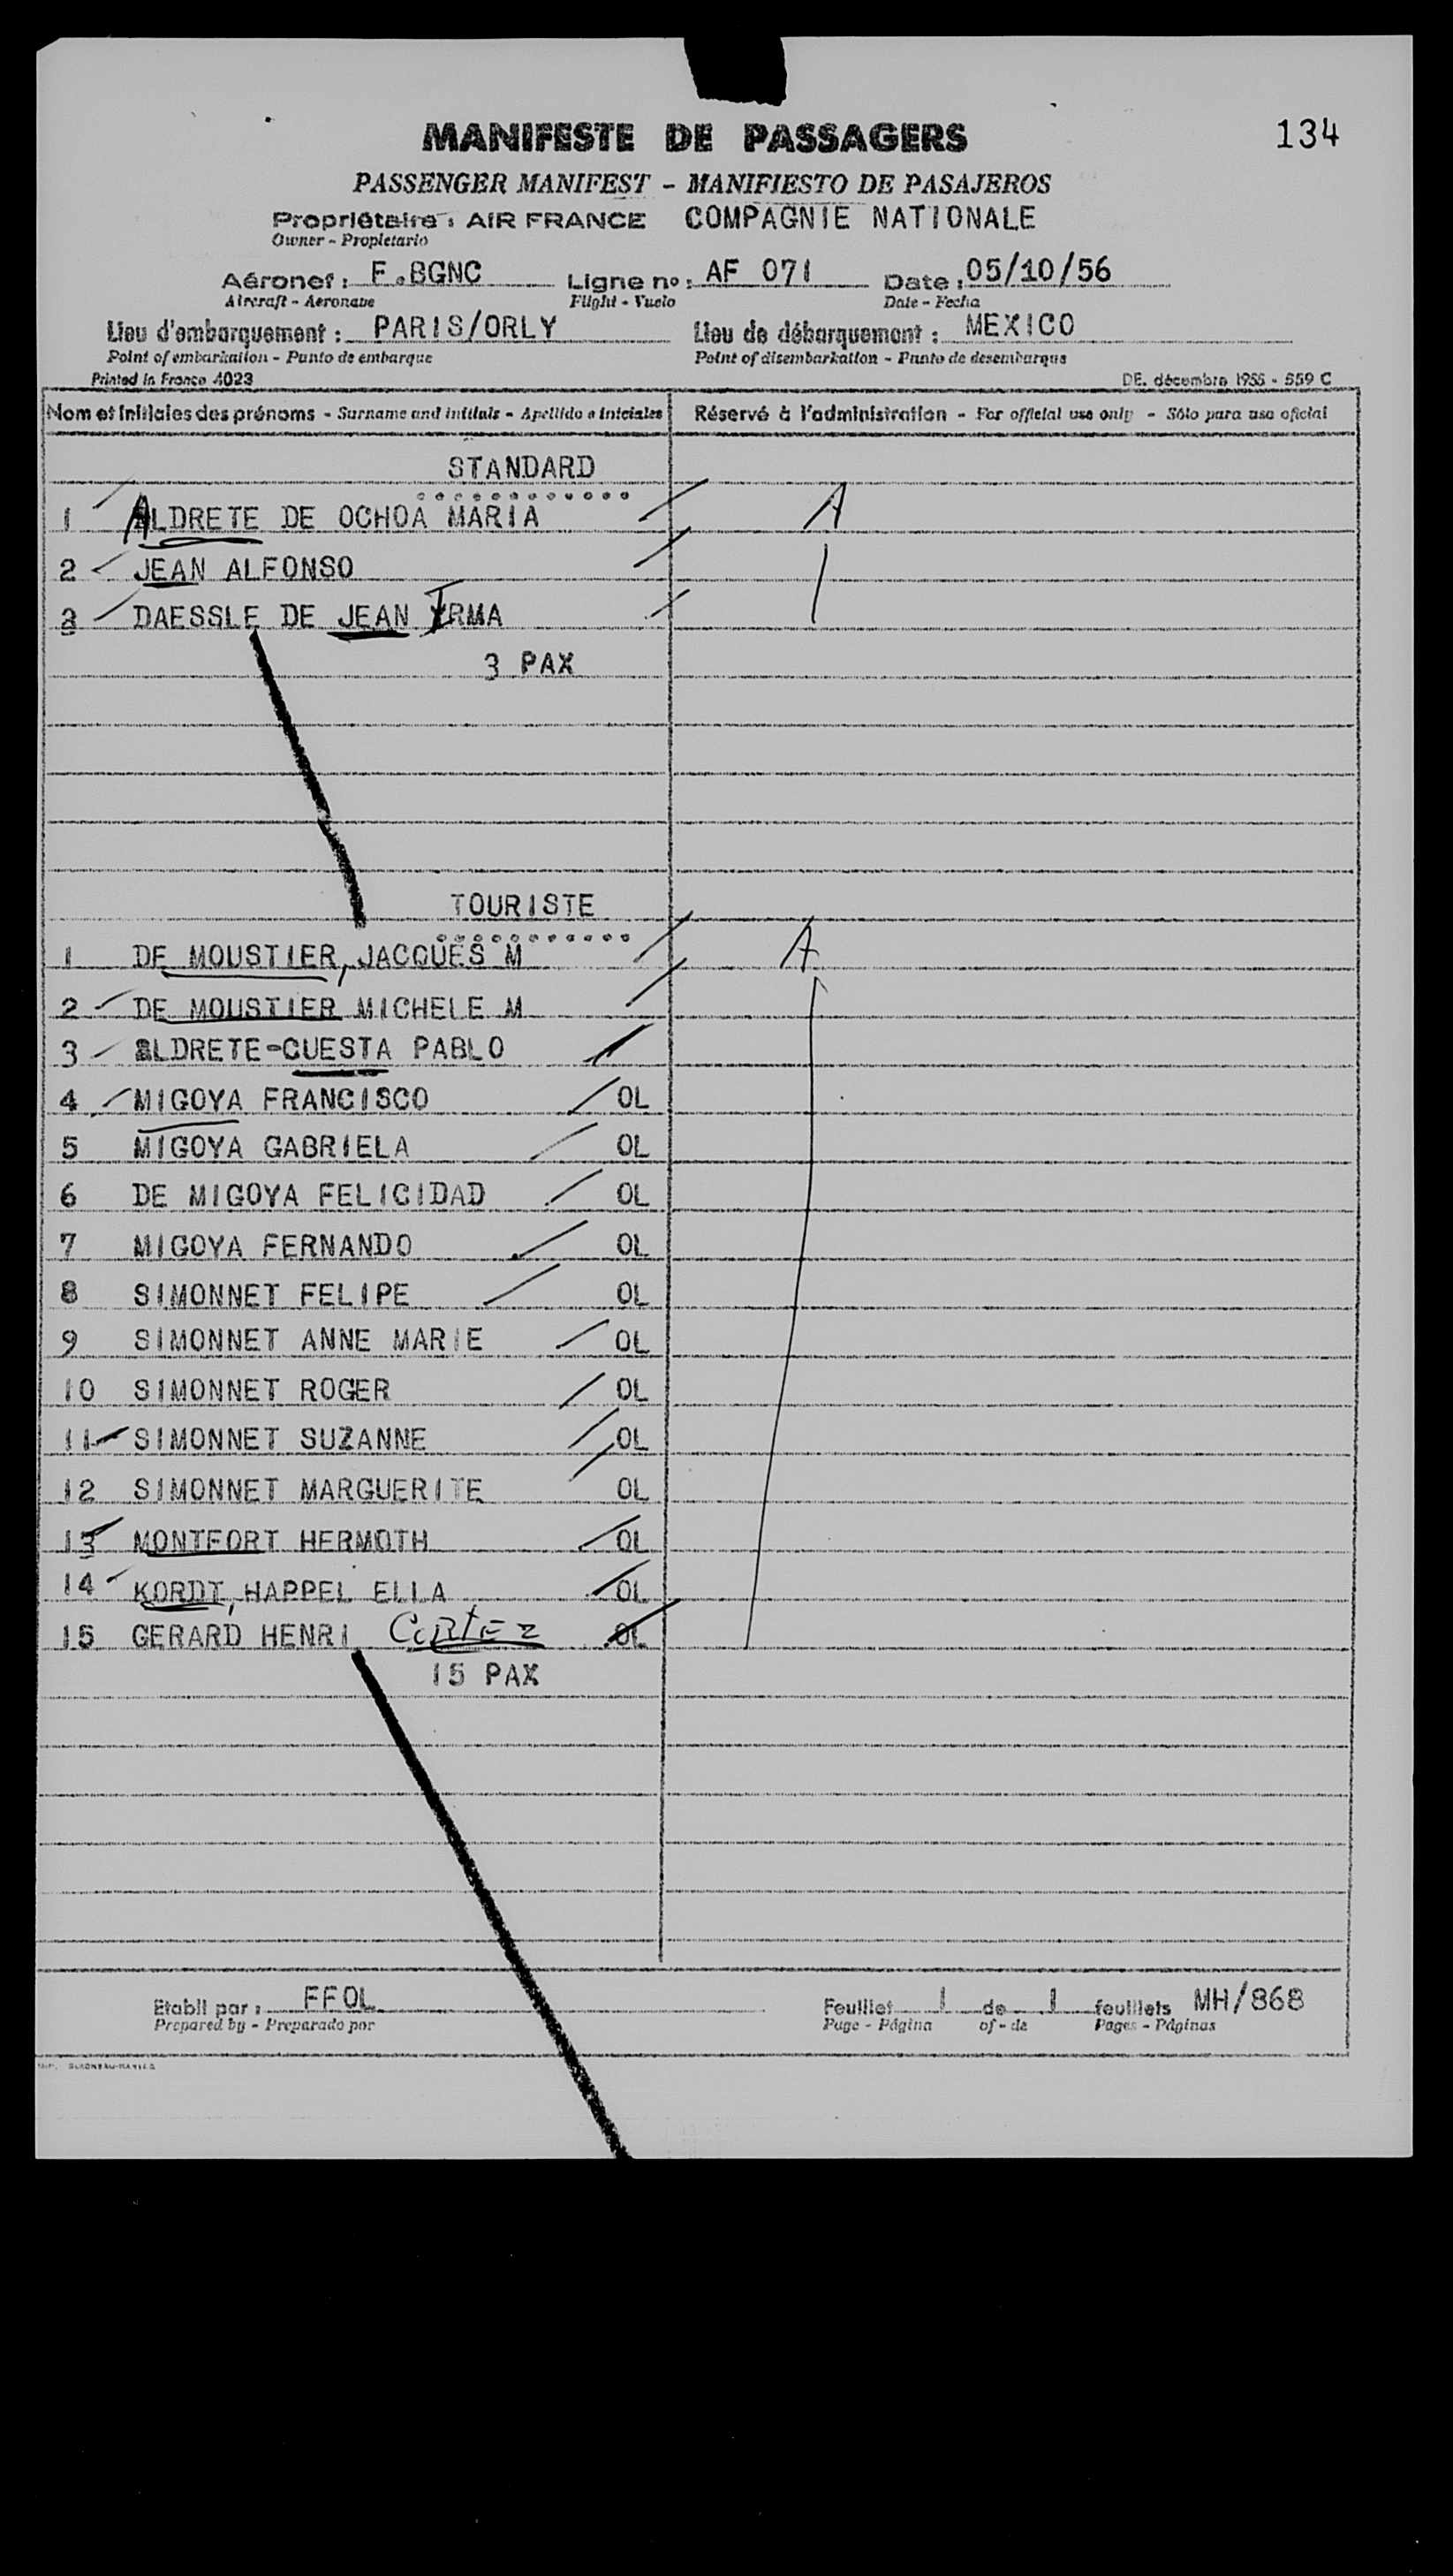 MANIFESTE DE PASSAGERS 134
PASSENGER MANIFEST - MANIFIESTO DE PASAJEROS
Propriétaire : AIR FRANCE COMPAGNIE NATIONALE
Owner - Propietario
Aéronef : F.BGNC Ligne no : AF 071 Date : 05/10/56
Aircraft - Aeronave Flight - Vuelo Date - Fecha
Lieu d'embarquement : PARIS/ORLY Lieu de débarquement : MEXICO
Point of embarkation - Punto de embarque Point of disembarkation - Punto de desembarque
Printed in France 4023 DE. décembre 1955 - 559 C
Nom et initiales des prénoms - Surname and initials - Apellido e iniciales Réservé à l'administration - For official use only - Sólo para uso oficial
STANDARD
1 ALDRETE DE OCHOA MARIA A
2 JEAN ALFONSO
3 DAESSLE DE JEAN IRMA
3 PAX
TOURISTE
1 DE MOUSTIER, JACQUES M A
2 DE MOUSTIER MICHELE M
3 ALDRETE-CUESTA PABLO
4 MIGOYA FRANCISCO OL
5 MIGOYA GABRIELA OL
6 DE MIGOYA FELICIDAD OL
7 MIGOYA FERNANDO OL
8 SIMONNET FELIPE OL
9 SIMONNET ANNE MARIE OL
10 SIMONNET ROGER OL
11 SIMONNET SUZANNE OL
12 SIMONNET MARGUERITE OL
13 MONTFORT HERMOTH OL
14 KORDT, HAPPEL ELLA OL
15 GERARD HENRI CORTEZ OL
15 PAX
Etabli par : FFOL Feuillet 1 de 1 feuillets MH/868
Prepared by - Preparado por Page - Página of - de Pages - Páginas